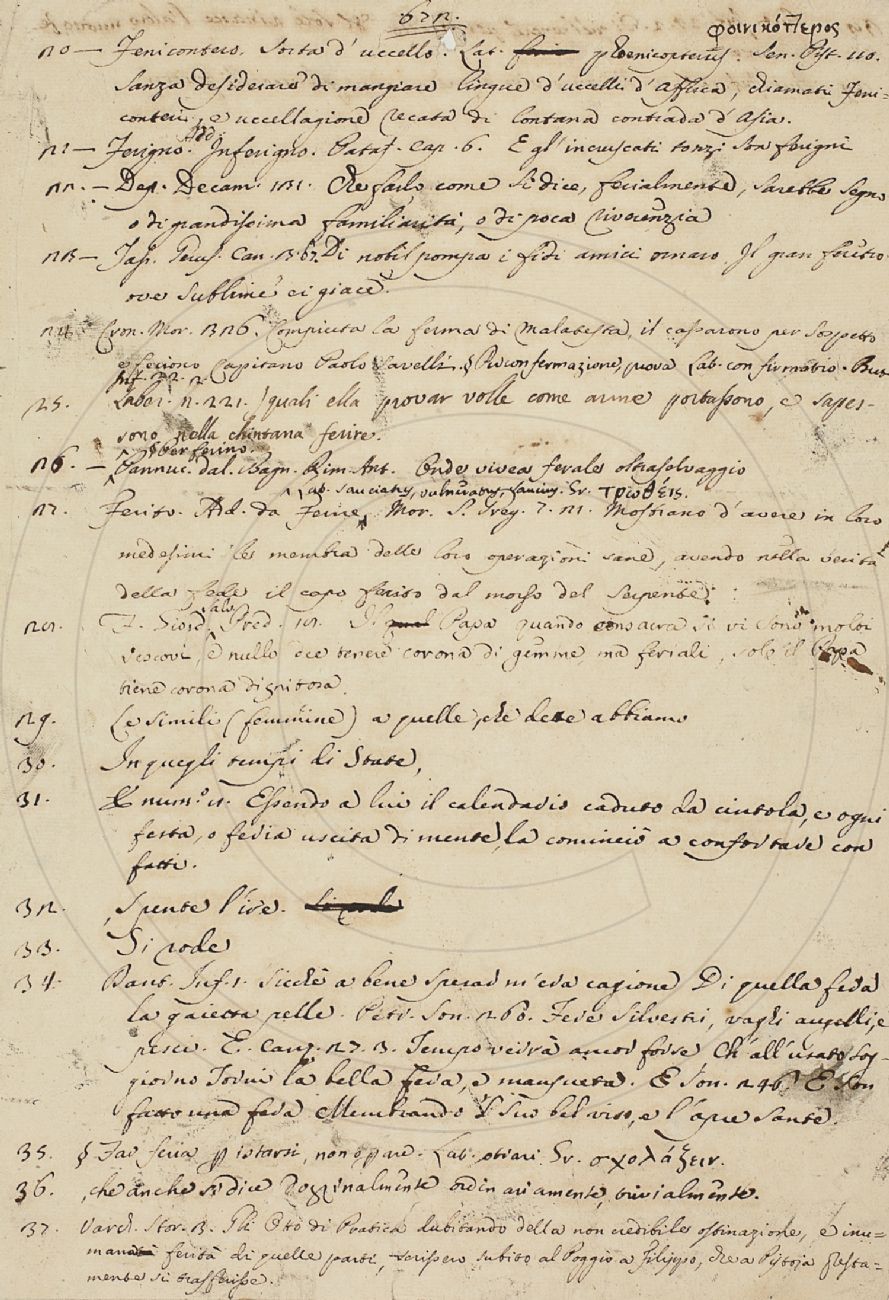 672.
φοινικόπτερος
20 — Fenicontero. Sorta d'uccello. Lat. phoenicopterus. Sen. Pist. 110.
Sanza desiderare di mangiare lingue d'uccelli d'Affrica, chiamati Feni-
conteri, e uccellagione recata di lontana contrada d'Asia.
Add.
21 — Ferigno. Inferigno. Pataf. Cap. 6. E gl'incruscati tonzi son ferigni
22. — Dep. Decam. 131. Che farlo come si dice, ferialmente, sarebbe segno
o di grandissima familiarità, o di poca riverenzia
23 — Canz. 1367. Di nobil pompa i fidi amici ornaro Il gran feretro
ove sublime ei giace.
24. Cron. Mor. 326. Compiuta la ferma di Malatesta, il cassarono per sospetto
e feciono Capitano Paolo Savelli. § Riconfermazione, prova Lat. confirmatio. But.
Inf. 22. 2.
25. Laber. n. 221. I quali ella provar volle come arme portassono, e sapes-
sono nella chintana ferire.
§ Per ferino.
26. — Bannuc. dal. Bagn. Rim. Ant. Onde vivea ferale oltraselvaggio
Lat. sauciatus, vulneratus, saucius. Gr. τρωθείς.
27. Ferito. Ad. da Ferire. Mor. S. Greg. 7. 21. Mostrano d'avere in loro
medesimi le membra delle loro operazioni sane, avendo nella verità
della fede il capo ferito dal morso del Serpente.
Salv.
28. F. Giord. Pred. Il Papa quando consacra si vi sono molti
vescovi, e nullo dee tenere corona di gemme ma feriali, solo il Papa
tiene corona dignitosa.
29. Le simili (femmine) a quelle, che dette abbiamo
30. In quegli tempi di State,
31. E num. Essendo a lui il calendario caduto da cintola, e ogni
festa, o feria uscita di mente, la cominciò a confortare con
fatti.
32. , Spente l'ire.
33. Si rode
34. Dant. Inf. 1. Sicchè a bene sperar m'era cagione Di quella fera
la gaietta pelle. Petr. Son. 260. Fere silvestri, vaghi augelli, e
pesci. E Canz. 27. 3. Tempo verrà ancor forse Ch'all'usato sog-
giorno Torni la bella fera, e mansueta. E Son. 246. E son
fatto una fera Membrando il suo bel viso, e l'opre sante.
35. § Far feria p. istarsi, non oprare. Lat. otiari. Gr. σχολάζειν.
36. , che anche si dice Dozzinalmente ordinariamente, trivialmente.
37. Varch. Stor. 3. Gli Otto di Pratica dubitando della non credibile ostinazione, e inu-
mana ferità di quelle parti, scrissero subito al Poggio a Filippo, che a Pistoja presta-
mente si trasferisse.